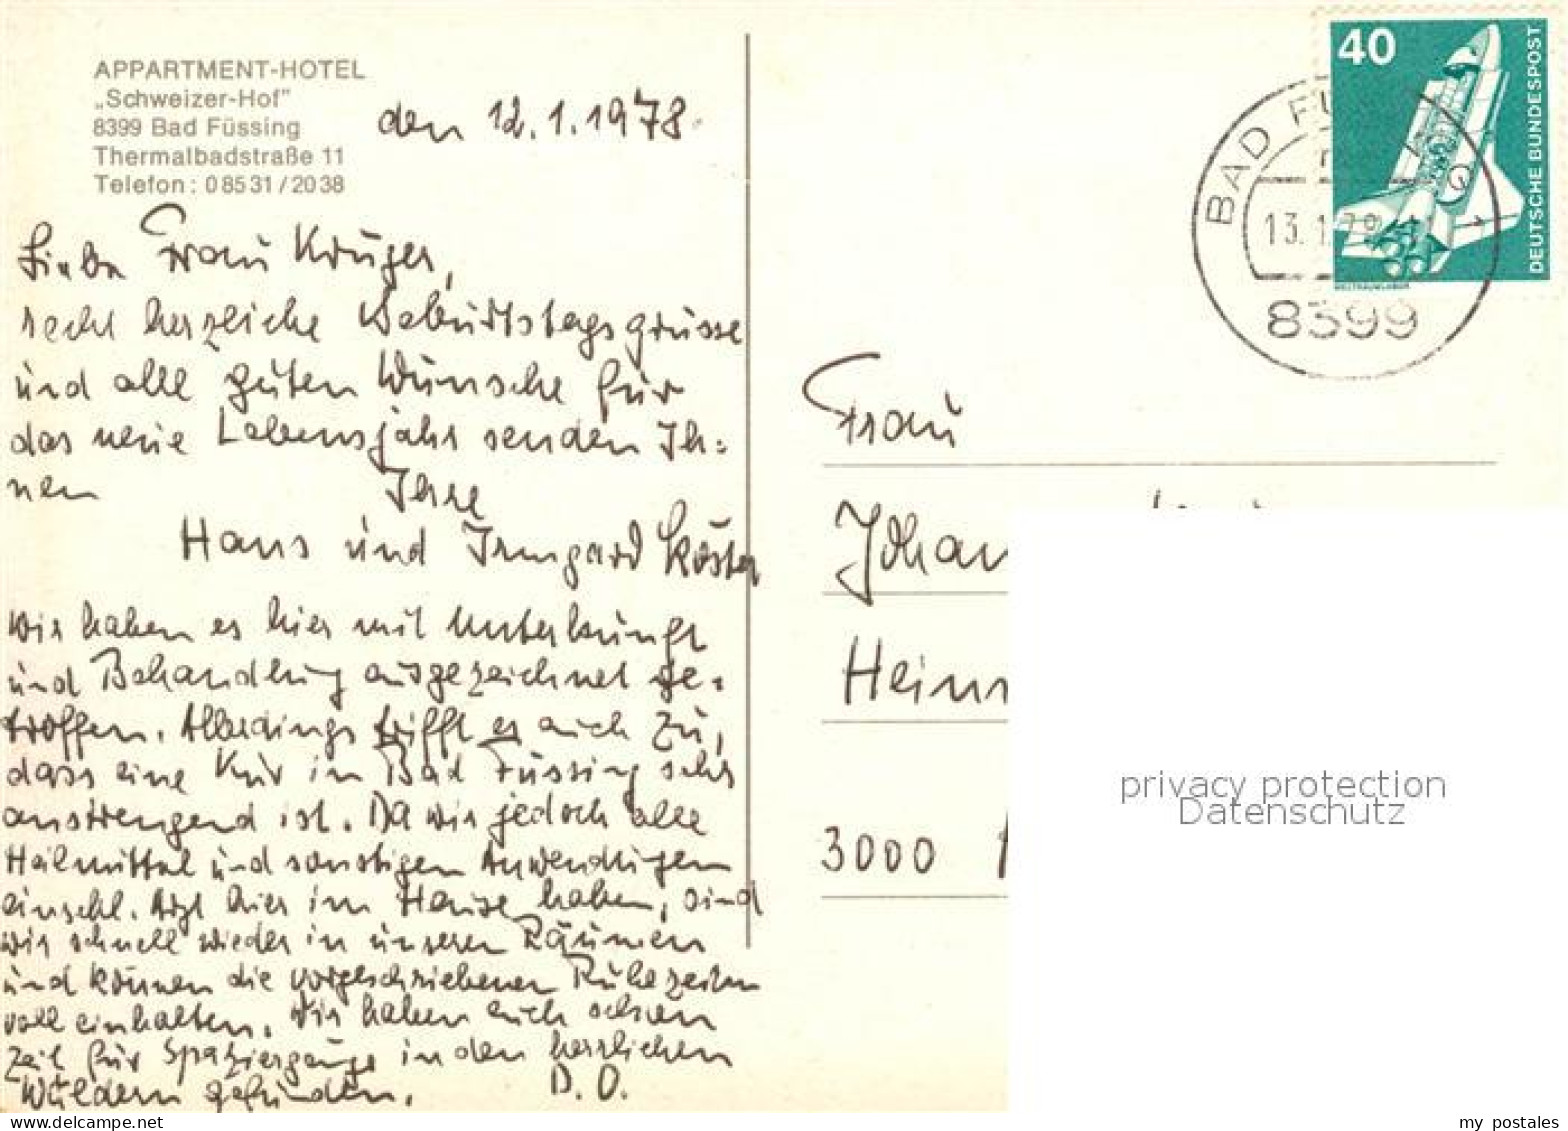 APPARTMENT-HOTEL
„Schweizer-Hof"
8399 Bad Füssing
Thermalbadstraße 11
Telefon: 08531/2038
den 12.1.1978.
Liebe Frau Krüger,
recht herzliche Geburtstagsgrüsse
und alle guten Wünsche für
das neue Lebensjahr senden Ih=
nen Ihre
Hans und Irmgard Köster
Wir haben es hier mit Unterkunft
und Behandlung ausgezeichnet ge=
troffen. Allerdings trifft es auch zu,
dass eine Kur in Bad Füssing sehr
anstrengend ist. Da wir jedoch alle
Heilmittel und sonstigen Anwendungen
einschl. Arzt hier im Hause haben, sind
wir schnell wieder in unseren Räumen
und können die vorgeschriebenen Ruhezeiten
voll einhalten. Wir haben auch schon
Zeit für Spaziergänge in den herrlichen
Wäldern gefunden. D. O.
40
DEUTSCHE BUNDESPOST
WELTRAUMLABOR
BAD FÜ
13.1.78
8399
Frau
Johan
Hein
3000
privacy protection
Datenschutz
my postales